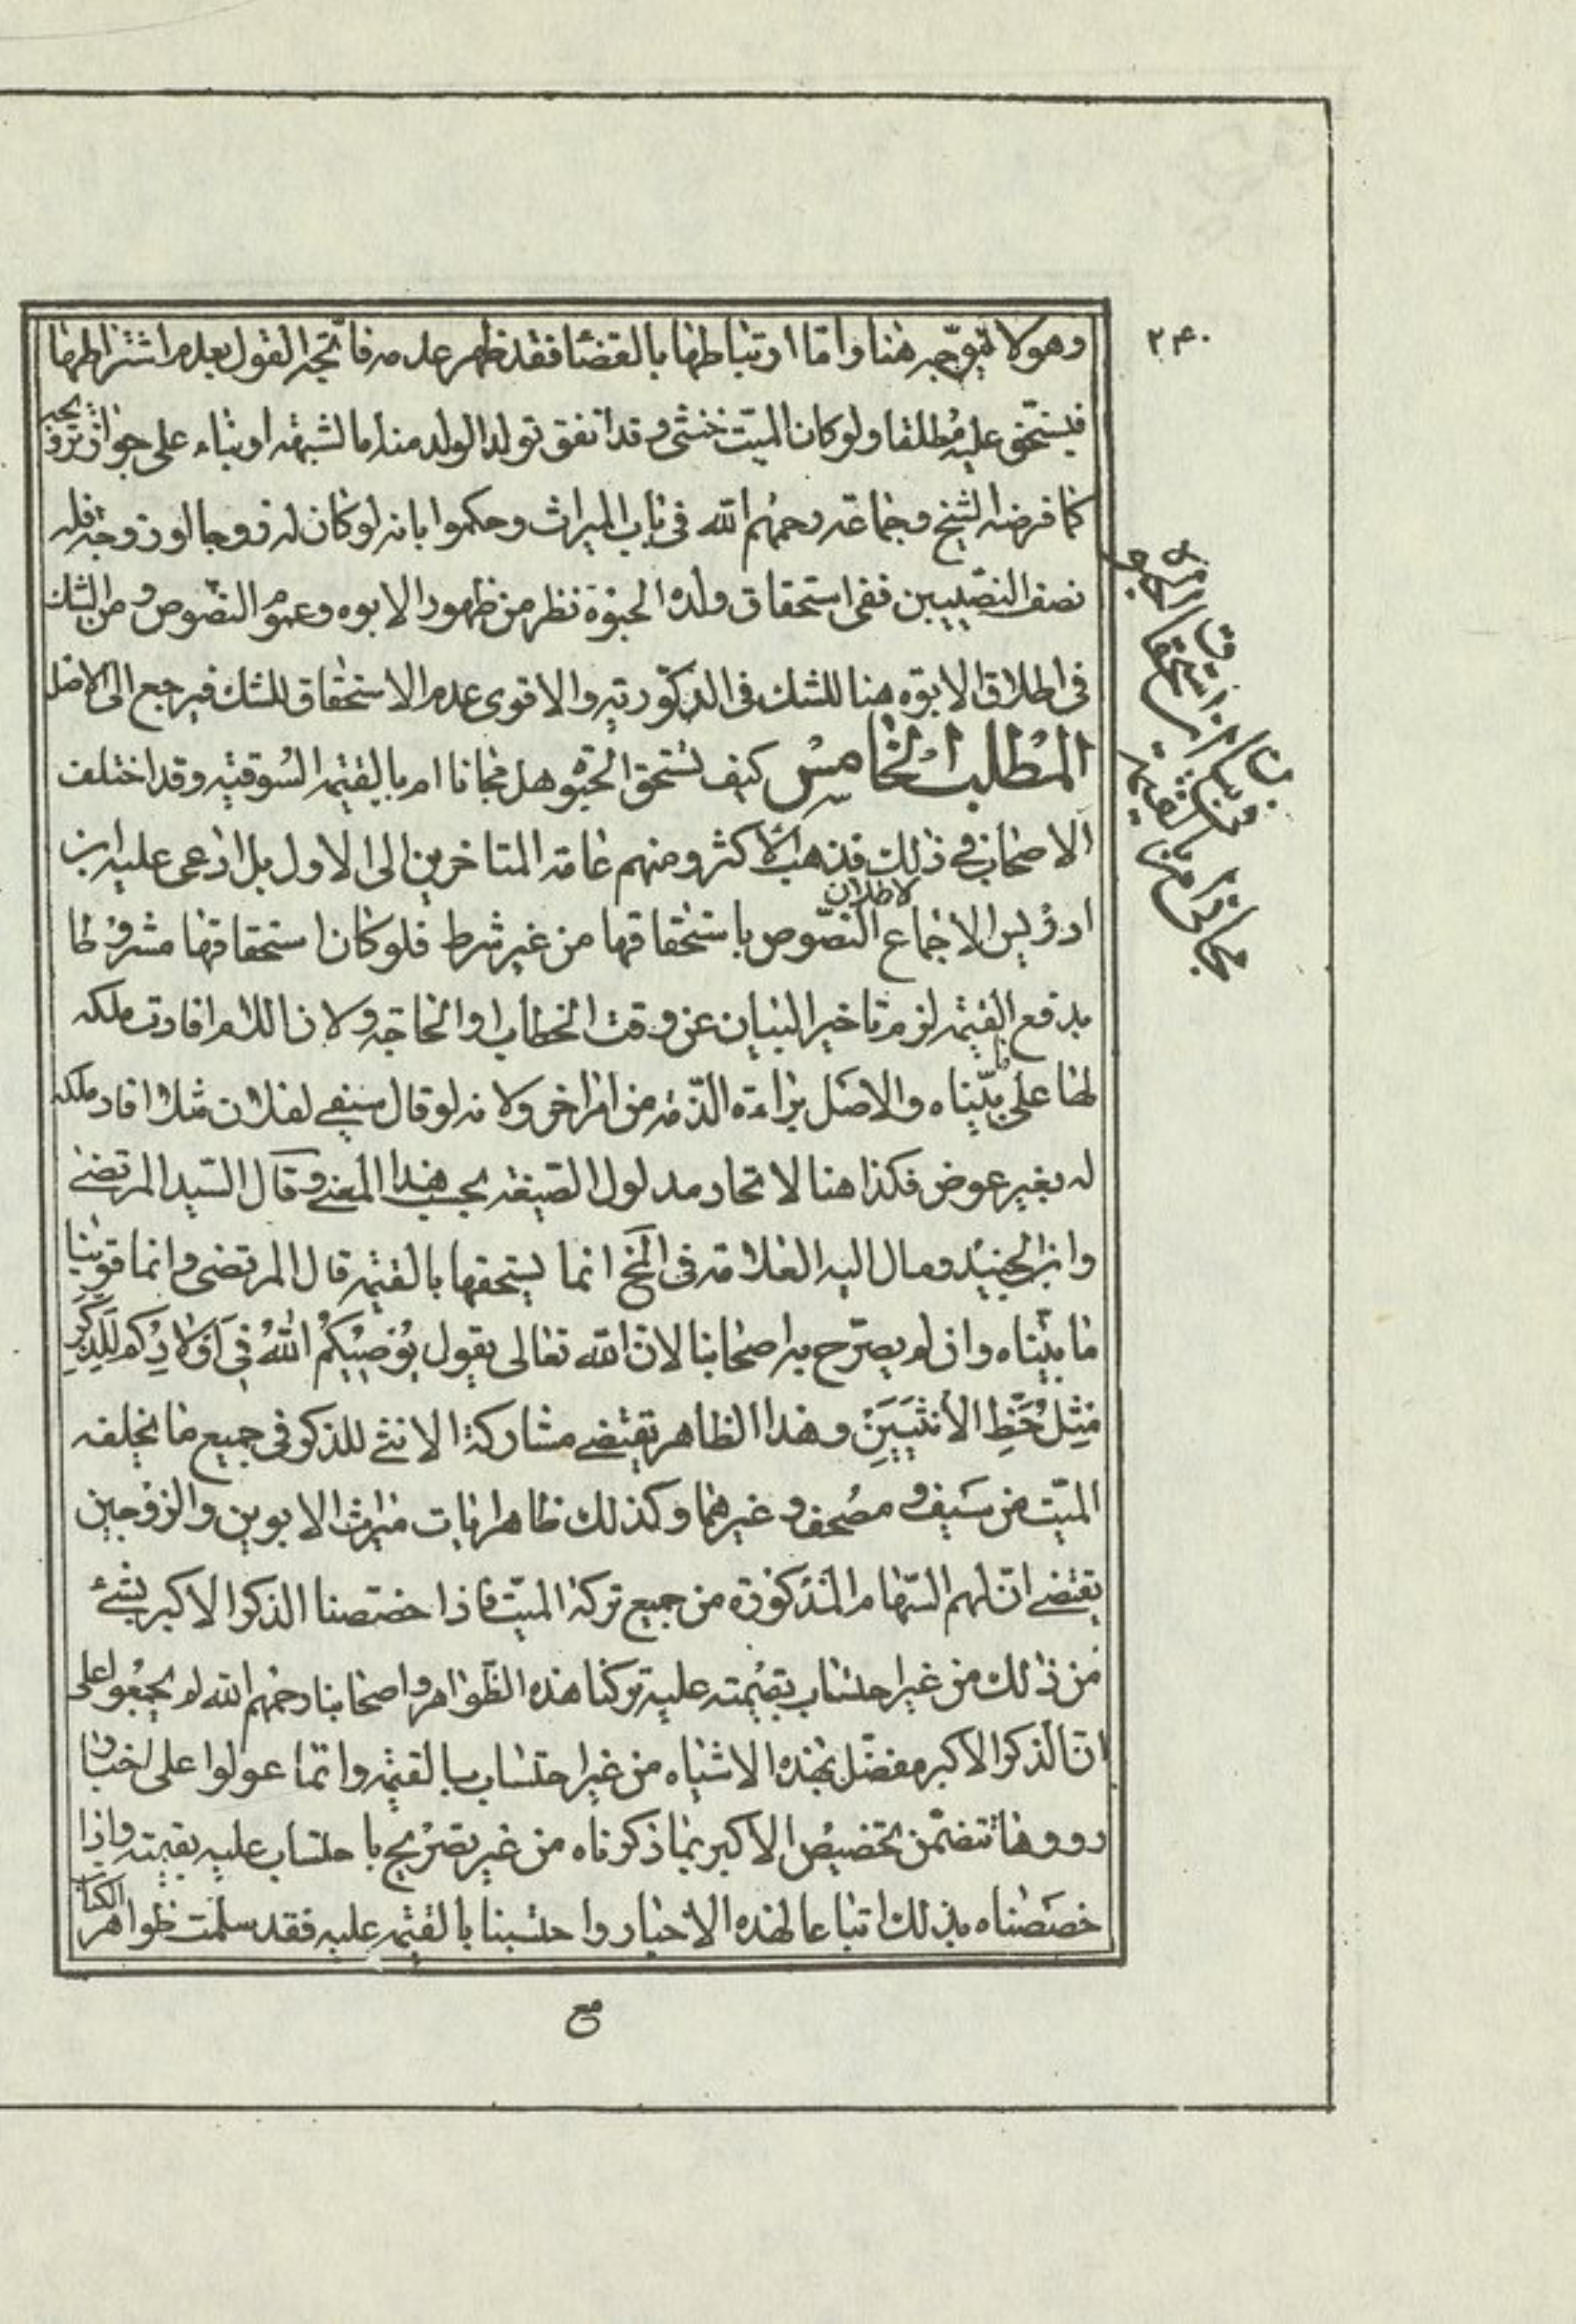 ٢٤٠
وهو لا يتوجه هنا واما ارتباطها بالقضا فقد ظهر عدمه فاتجه القول بعدم اشتراطها
فيستحق عليه مطلقا ولو كان الميت خنثى وقد اتفق تولد الولد منه اما لشبهة او بناء على جواز تزويجه
كما فرضه الشيخ وجماعة رحمهم الله فى باب الميراث وحكموا بانه لو كان له زوجا او زوجة فله
نصف النصيبين ففى استحقاق ولده الحبوة نظر من ظهور الابوه وعموم النصوص ومن الشك
فى اطلاق الابوه هنا للشك فى الذكوريته والاقوى عدم الاستحقاق للشك فيرجع الى الاصل
المطلب الخامس كيف تستحق الحبوه هل مجانا ام بالقيمة السوقية وقد اختلف
الاصحاب في ذلك فذهب الاكثر ومنهم عامة المتاخرين الى الاول بل ادعى عليه ابن
ادريس الاجماع لاطلاق النصوص باستحقاقها من غير شرط فلو كان استحقاقها مشروطا
بدفع القيمة لزم تاخير البيان عن وقت الخطاب او الحاجة ولان اللام افادت ملكه
لها على ما بيناه والاصل براءة الذمة من امر اخر ولانه لو قال سيفي لفلان مثلا افاد ملكه
له بغير عوض فكذا هنا لاتحاد مدلول الصيغة بحسب هذا المعنى وقال السيد المرتضى
وابن الجنيد ومال اليه العلامة فى المخ انما يستحقها بالقيمة قال المرتضى وانما قوينا
ما بيناه وان لم يصرح به اصحابنا لان الله تعالى يقول يُوصِيكُمُ اللهُ فِى أَوْلَادِكُمْ لِلذَّكَرِ
مِثْلُ حَظِّ الأُنْثَيَيْنِ وهذا الظاهر يقتضى مشاركة الانثى للذكر فى جميع ما يخلفه
الميت من سيف و مصحف و غيرهما وكذلك ظاهر ايات ميراث الابوين والزوجين
يقتضى ان لهم السهام المذكورة من جميع تركة الميت فاذا خصصنا الذكر الاكبر بشئ
من ذلك من غير احتساب بقيمته عليه تركنا هذه الظواهر واصحابنا رحمهم الله لم يجمعوا على
ان الذكر الاكبر مفضل بهذه الاشياء من غير احتساب بالقيمة وانما عولوا على اخبار
رووها تتضمن تخصيص الاكبر بما ذكرناه من غير تصريح باحتساب عليه بقيمته واذا
خصصناه بذلك اتباعا لهذه الاخبار واحتسبنا بالقيمة عليه فقد سلمت ظواهر الكتاب
مع